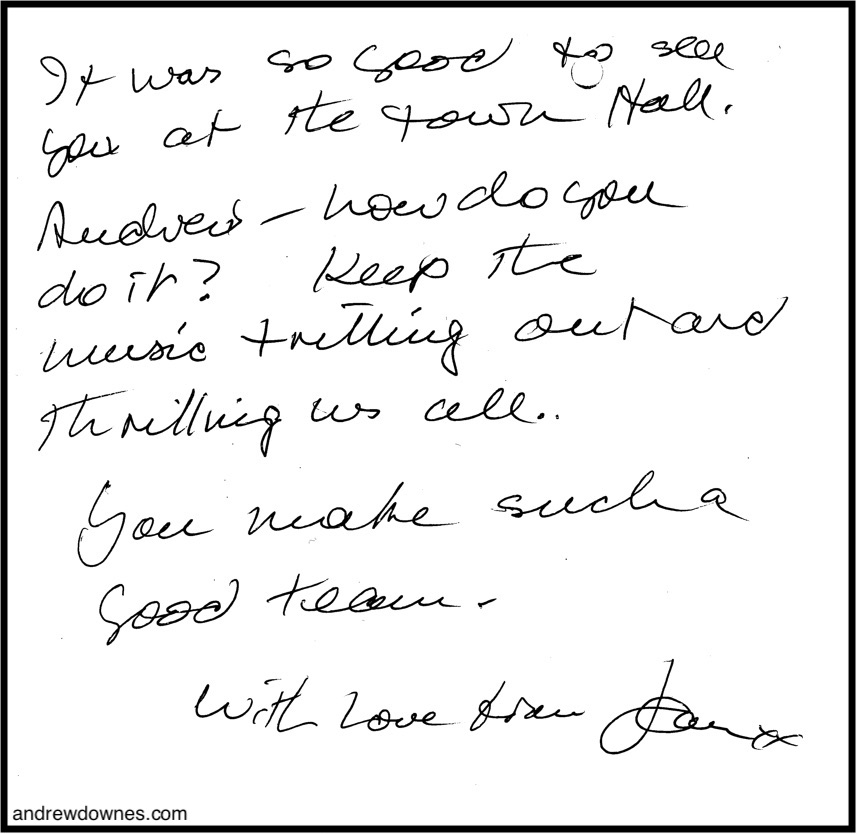 It was so good to see
you at the town Hall.
Andrew – how do you
do it? Keep the
music trilling out and
thrilling us all..
You make such a
good team.
With love from Jan x
andrewdownes.com